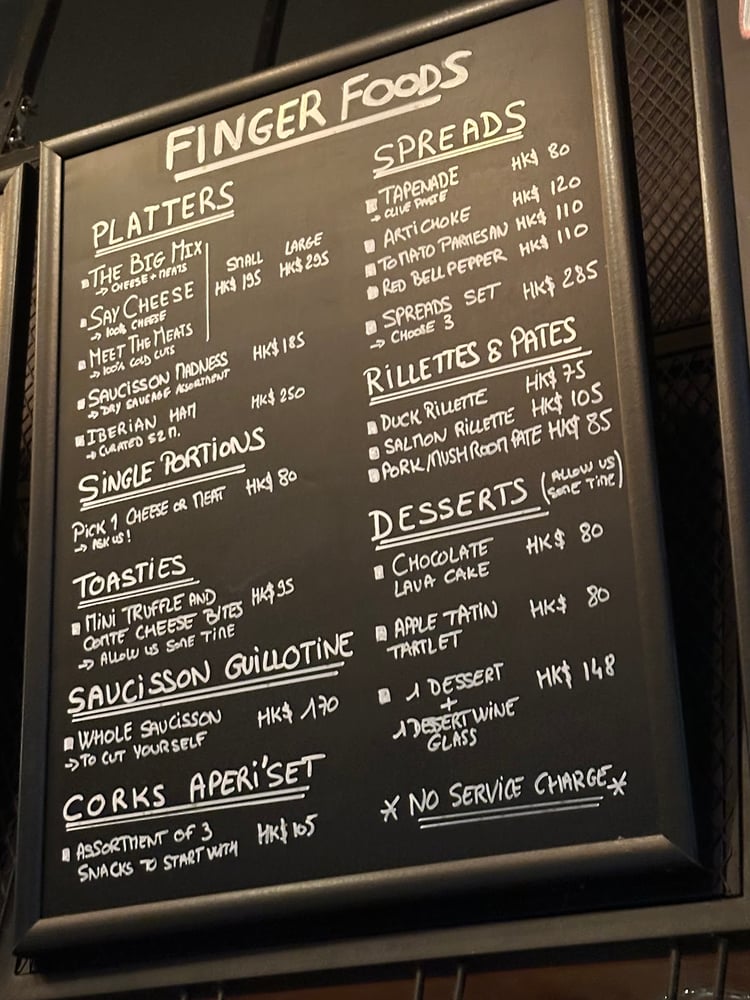 FINGER FOODS
PLATTERS
SMALL LARGE
THE BIG MIX HK$ 195 HK$ 295
→ CHEESE + MEATS
SAY CHEESE
→ 100% CHEESE
MEET THE MEATS
→ 100% COLD CUTS
SAUCISSON MADNESS HK$ 185
→ DRY SAUSAGE ASSORTMENT
IBERIAN HAM HK$ 250
→ CURATED 52 M.
SINGLE PORTIONS
PICK 1 CHEESE OR MEAT HK$ 80
→ ASK US!
TOASTIES
MINI TRUFFLE AND
COMTE CHEESE BITES HK$ 95
→ ALLOW US SOME TIME
SAUCISSON GUILLOTINE
WHOLE SAUCISSON HK$ 170
→ TO CUT YOURSELF
CORKS APERI'SET
ASSORTMENT OF 3 HK$ 105
SNACKS TO START WITH
SPREADS
TAPENADE HK$ 80
→ OLIVE PASTE
ARTICHOKE HK$ 120
TOMATO PARMESAN HK$ 110
RED BELL PEPPER HK$ 110
SPREADS SET HK$ 285
→ CHOOSE 3
RILLETTES & PATES
DUCK RILLETTE HK$ 75
SALMON RILLETTE HK$ 105
PORK/MUSHROOM PATE HK$ 85
DESSERTS (ALLOW US
SOME TIME)
CHOCOLATE HK$ 80
LAVA CAKE
APPLE TATIN HK$ 80
TARTLET
1 DESSERT HK$ 148
+
1 DESERT WINE
GLASS
* NO SERVICE CHARGE *